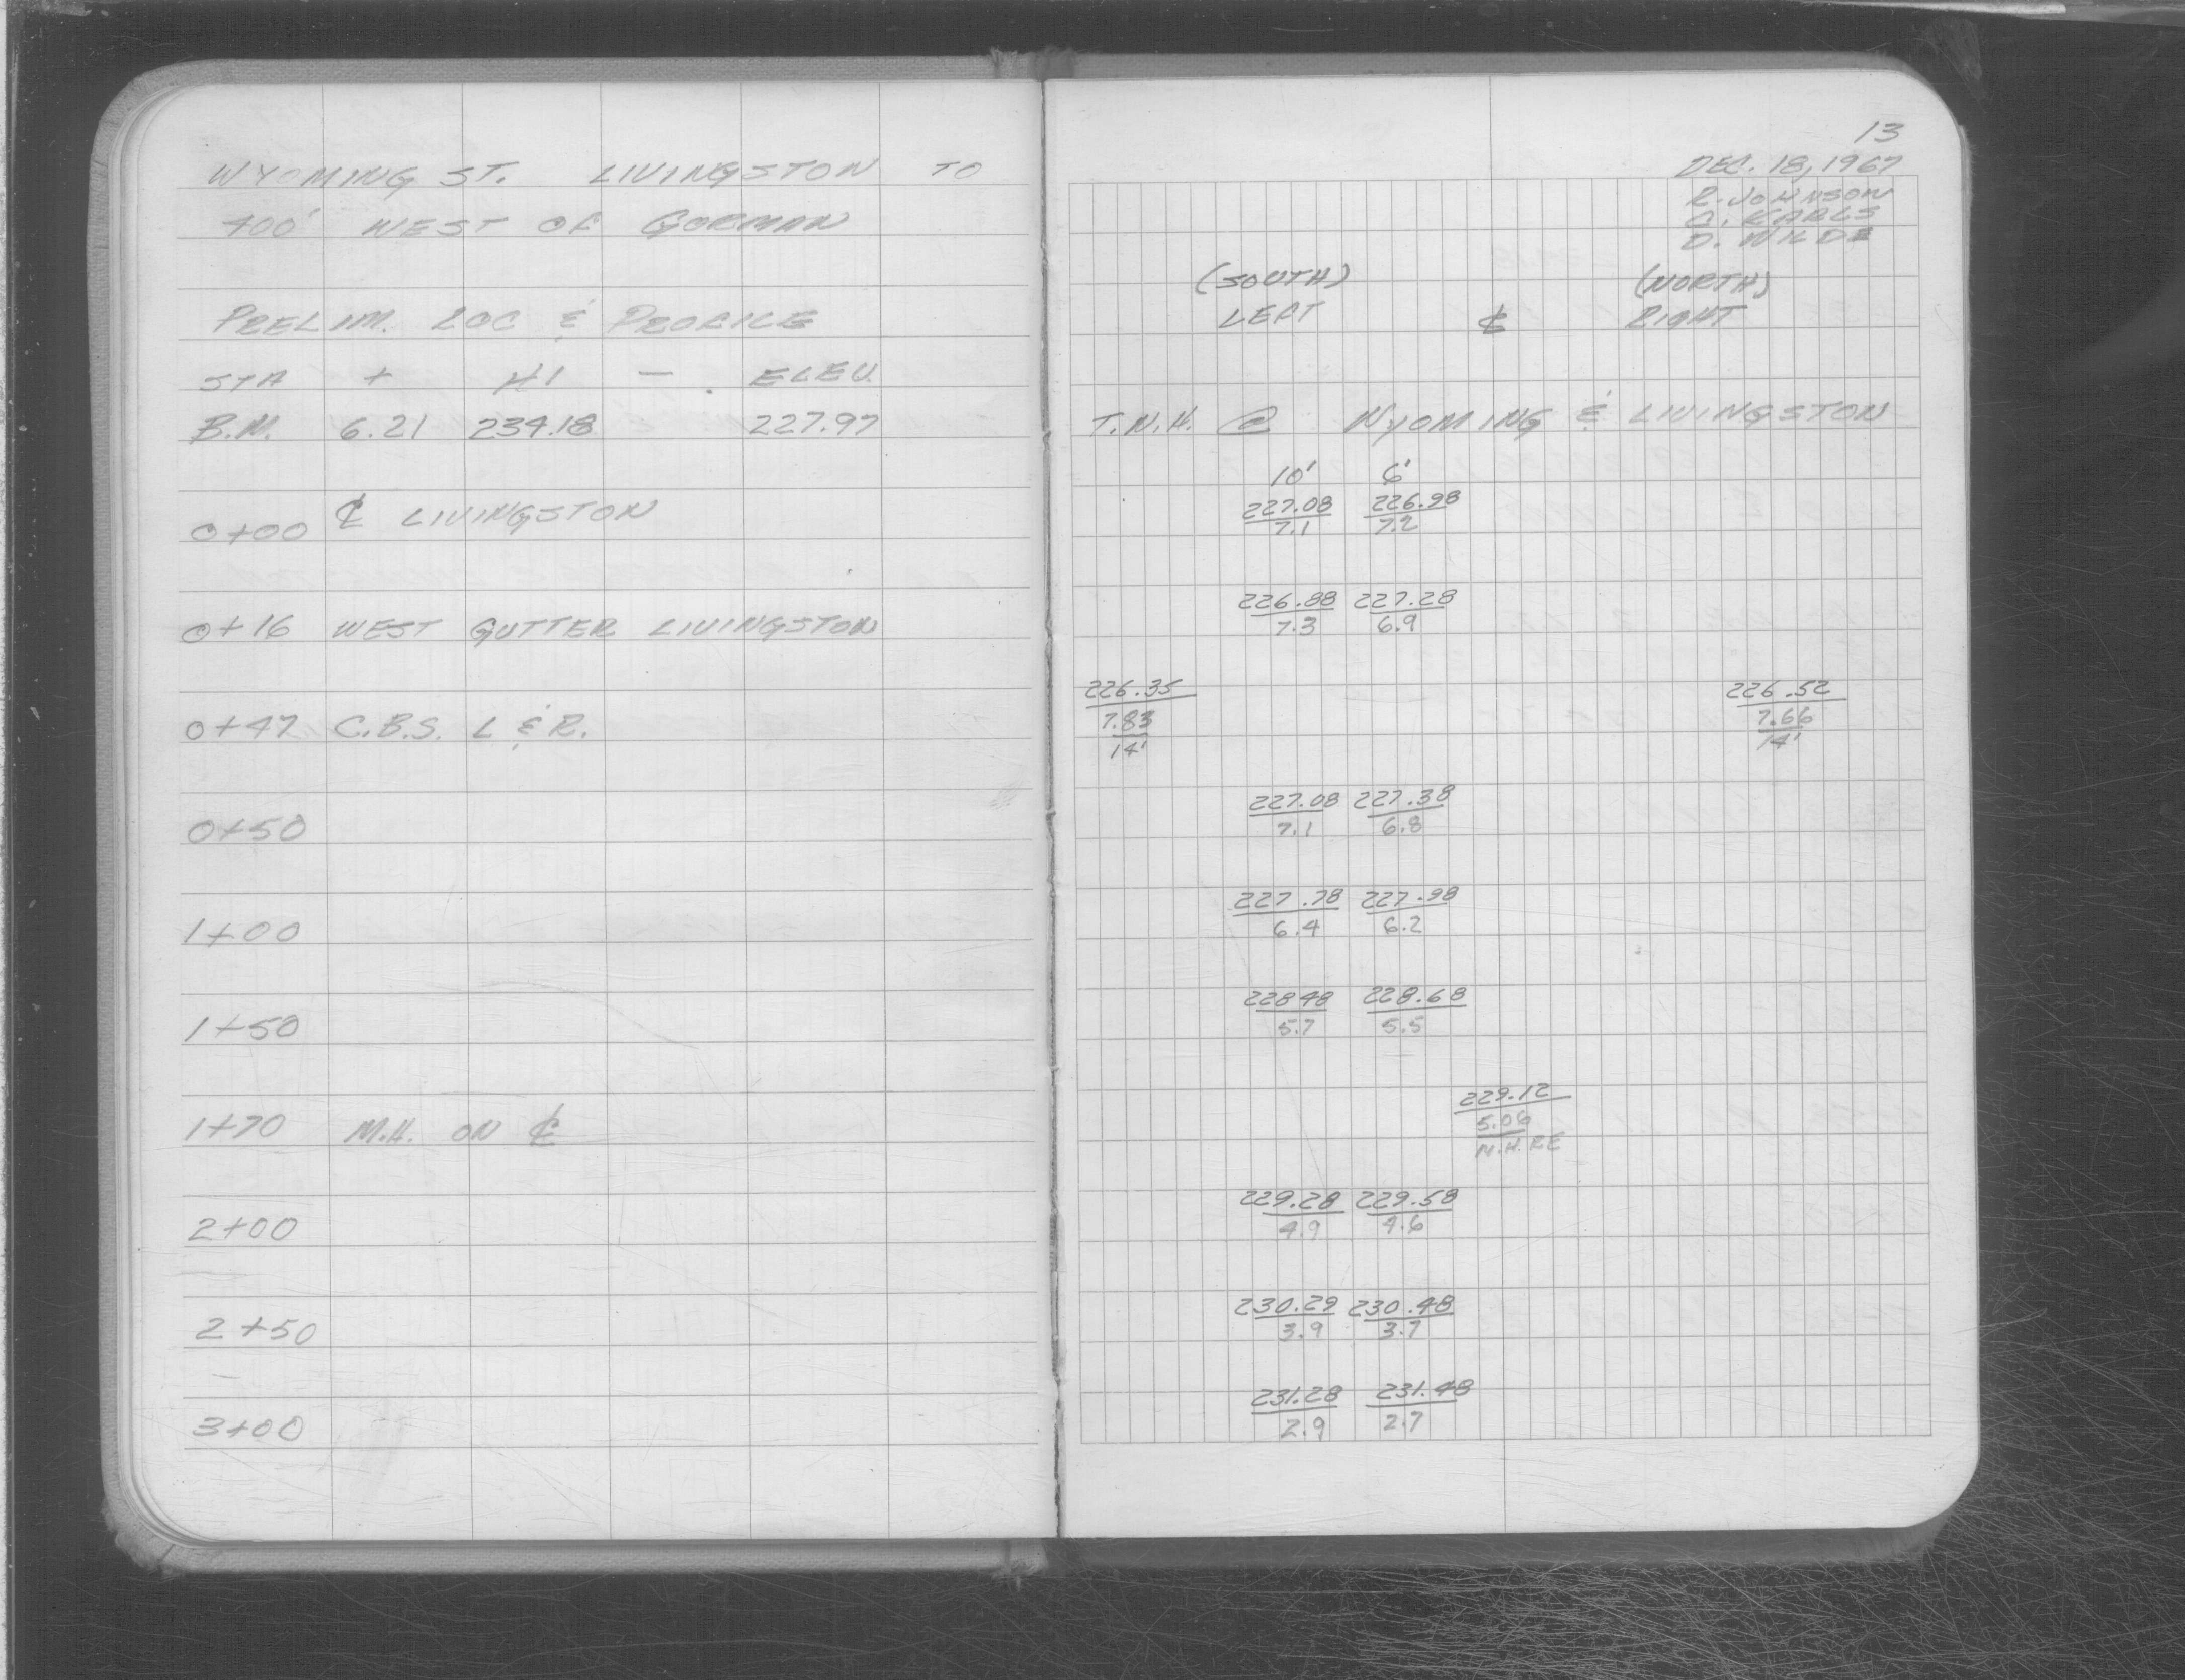 WYOMING ST. LIVINGSTON TO
400' WEST OF GORMAN
PRELIM. LOC & PROFILE
STA + HI - ELEV.
B.M. 6.21 234.18 227.97
0+00 ℄ LIVINGSTON
0+16 WEST GUTTER LIVINGSTON
0+47 C.B.S. L & R.
0+50
1+00
1+50
1+70 M.H. ON ℄
2+00
2+50
3+00
13
DEC. 18, 1967
R. JOHNSON
C. KARLS
D. WILDE
(SOUTH) (NORTH)
LEFT ℄ RIGHT
T.N.H. @ WYOMING & LIVINGSTON
10' 6'
227.08 226.98
7.1 7.2
226.88 227.28
7.3 6.9
226.35 226.52
7.83 7.66
14' 14'
227.08 227.38
7.1 6.8
227.78 227.98
6.4 6.2
228 48 228.68
5.7 5.5
229.12
5.06
M.H. RE
229.28 229.58
4.9 4.6
230.29 230.48
3.9 3.7
231.28 231.48
2.9 2.7